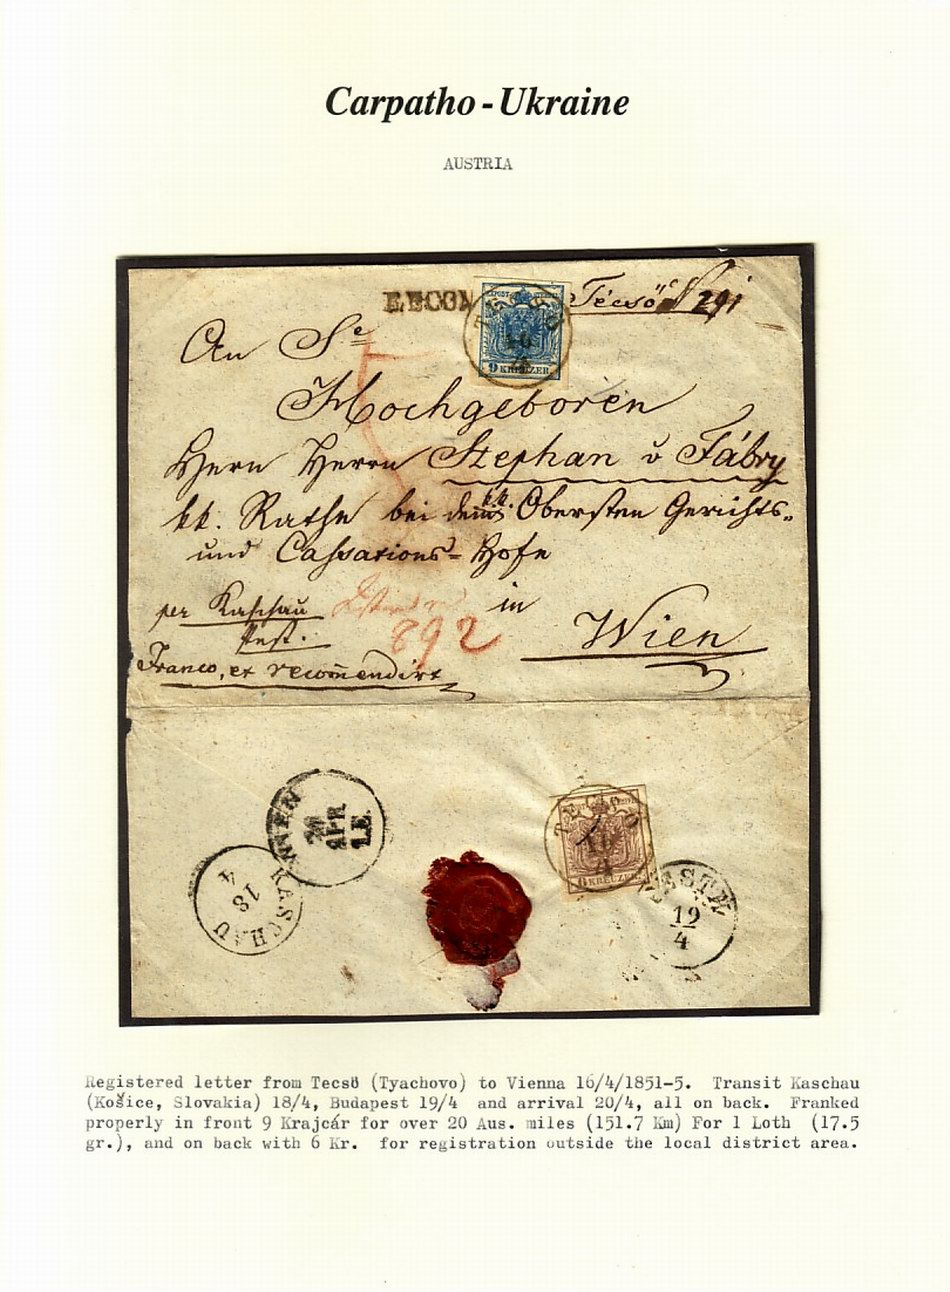 Carpatho-Ukraine
AUSTRIA
RECOM
Técsö
An Se
Hochgeboren
Herrn Herrn Stephan v Fábry
kk. Rathe bei dem k.k. Obersten Gerichts-
und Cassations-Hofe
in
Wien
per Kaschau
Pest.
Franco, et recom̄endirt
892
9 KREUZER
16
4
WIEN
20
APR.
I.E.
KASCHAU
18
4
6 KREUZER
16
4
PESTH
19
4
Registered letter from Tecsö (Tyachovo) to Vienna 16/4/1851-5. Transit Kaschau
(Košice, Slovakia) 18/4, Budapest 19/4 and arrival 20/4, all on back. Franked
properly in front 9 Krajcár for over 20 Aus. miles (151.7 Km) For 1 Loth (17.5
gr.), and on back with 6 Kr. for registration outside the local district area.